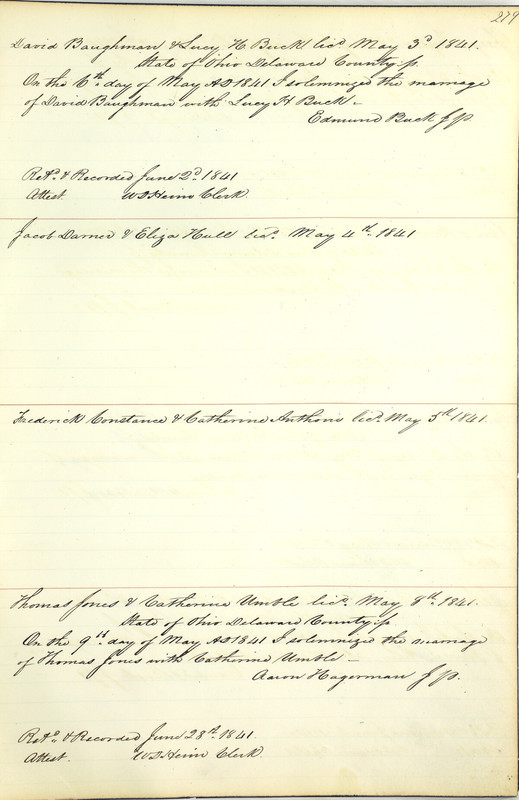 279
David Baughman & Lucy H. Buck licd. May 3d 1841.
State of Ohio Delaware County ss.
On the 6th day of May AD 1841 I solemnized the marriage
of David Baughman with Lucy H Buck –
Edmund Buck J.P.
Retd. & Recorded June 2d 1841
Attest. Clerk.
Jacob Darner & Eliza Hull licd. May 4th 1841
Frederick Constance & Catherine Anthoni licd. May 5th 1841.
Thomas Jones & Catherine Umble licd. May 8th 1841.
State of Ohio Delaware County ss.
On the 9th day of May AD 1841 I solemnized the marriage
of Thomas Jones with Catherine Umble –
Aaron Hagerman J.P.
Retd. & Recorded June 28th 1841.
Attest. Clerk.